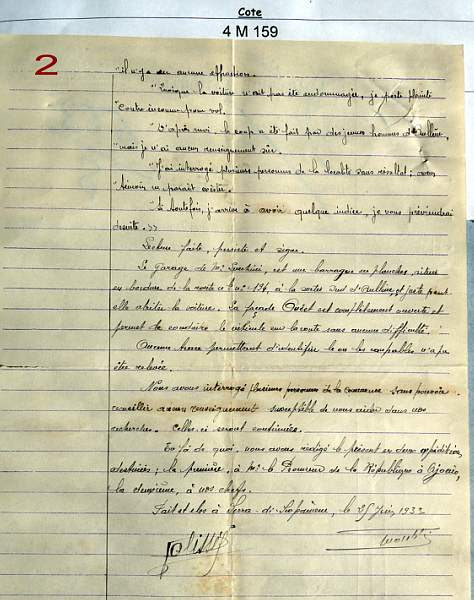 Cote
4 M 159
2
"il n'y a eu aucune effraction.
"Lorsque la voiture n'ait pas été endommagée, je porte plainte
"contre inconnu pour vol.
"D'après moi le coup a été fait par des jeunes hommes d'
"mais je n'ai aucun renseignement sûr.
"J'ai interrogé plusieurs personnes de la localité sans résultat; aucun
"témoin ne paraît exister.
"Si toutefois, j'arrive à avoir quelque indice, je vous préviendrai
de suite.»
Lecture faite, persiste et signe.
Le garage de Mr est une barraque en planches, située
en bordure de la route à la sortie et juste pour
elle abriter la voiture. La façade Ouest est complètement ouverte et
permet de conduire le véhicule sur la route sans aucune difficulté.
Aucune trace permettant d'identifier le ou les coupables n'a pu
être relevée.
Nous avons interrogé plusieurs personnes de la commune sans pouvoir
recueillir aucun renseignement susceptible de nous aider dans nos
recherches. Celles-ci seront continuées.
En foi de quoi, nous avons rédigé le présent en deux expéditions,
destinées; la première, à Mr le Procureur de la République à Ajaccio,
la deuxième, à nos chefs.
Fait et clos à Serra-di-Scopamene, le 25 Juin 193